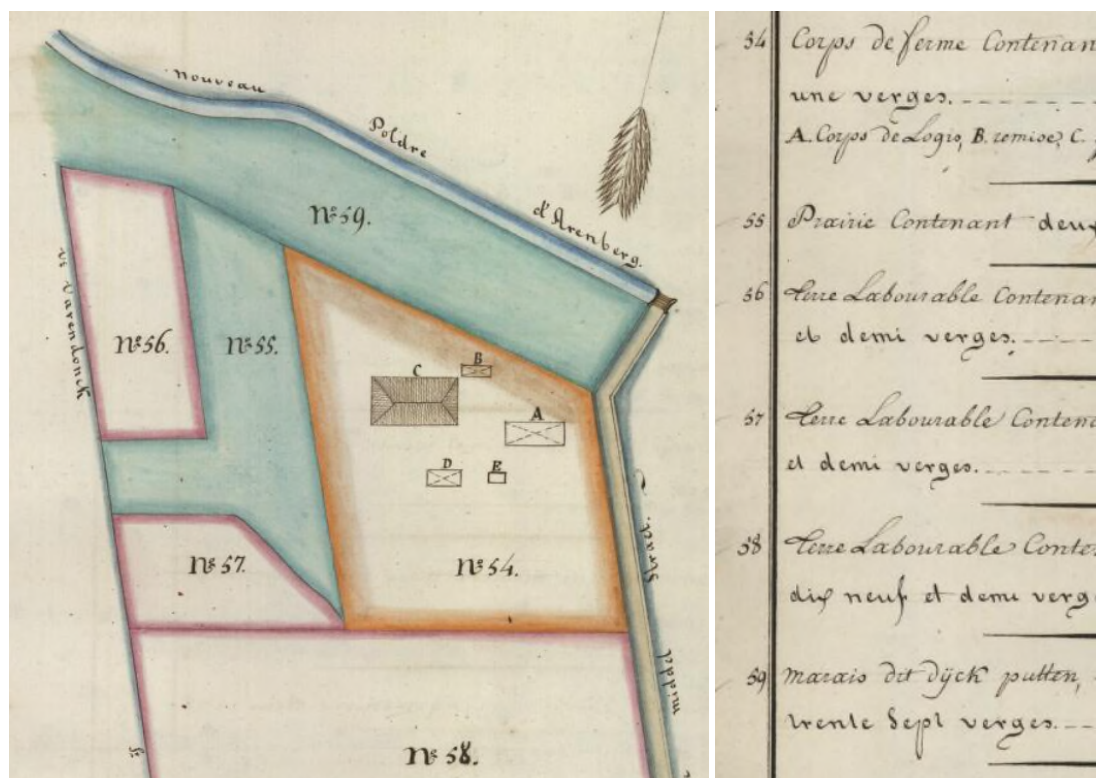 nouveau
Poldre
d'Arenberg.
N° 59.
vt varendonck
N° 56.
N° 55.
B
C
A
D
E
N° 57.
N° 54.
Straet.
middel
N° 58.
54 Corps de ferme Contenan
une verges.
A. Corps de Logis, B. remise, C.
55 Prairie Contenant deux
56 terre Labourable Contenan
et demi verges.
57 terre Labourable Conten
et demi verges.
58 terre Labourable Conte
dix neuf et demi verg
59 marais dit dÿck putten,
trente Sept verges.